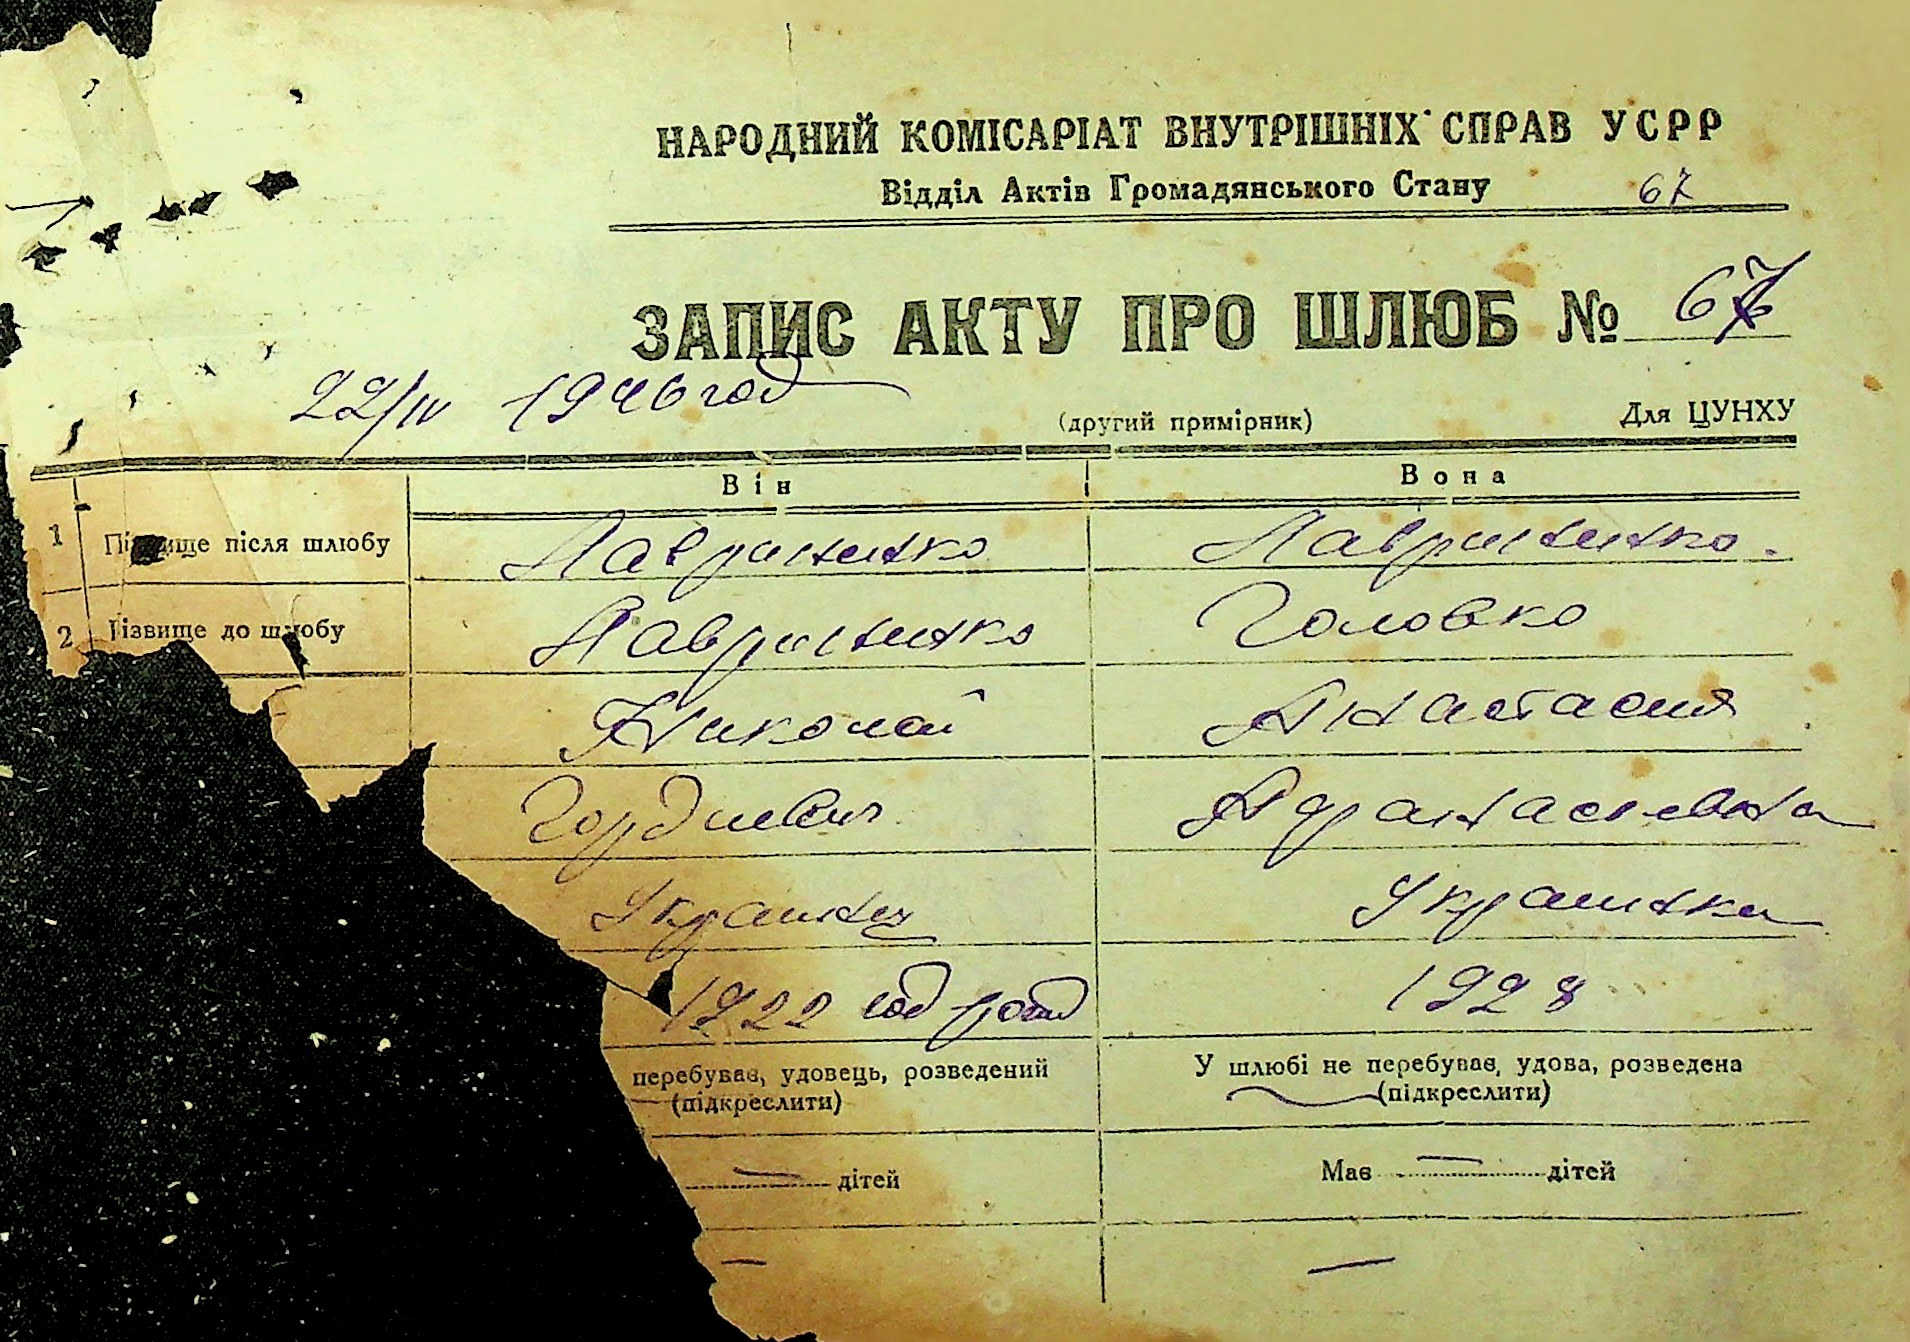 НАРОДНИЙ КОМІСАРІАТ ВНУТРІШНІХ СПРАВ УСРР
Відділ Актів Громадянського Стану 67
ЗАПИС АКТУ ПРО ШЛЮБ № 67
22/IV 1946 год
(другий примірник) Для ЦУНХУ
Він Вона
1 після шлюбу Лавриненко Лавриненко.
2 Прізвище до шлюбу Лавриненко Головко
Николай Анастасия
Гордиевич Афанасиевна
Украинец Украинка
1922 год рожд 1928
перебував, удовець, розведений У шлюбі не перебував, удова, розведена
(підкреслити) (підкреслити)
— дітей Має — дітей
— —